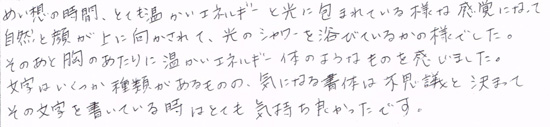 めい想の時間、とても温かいエネルギーと光に包まれている様な感覚になって
自然と顔が上に向かされて、光のシャワーを浴びているかの様でした。
そのあと胸のあたりに温かいエネルギー体のようなものを感じました。
文字はいくつか種類があるものの、気になる書体は不思議と決まって
その文字を書いている時はとても気持ち良かったです。